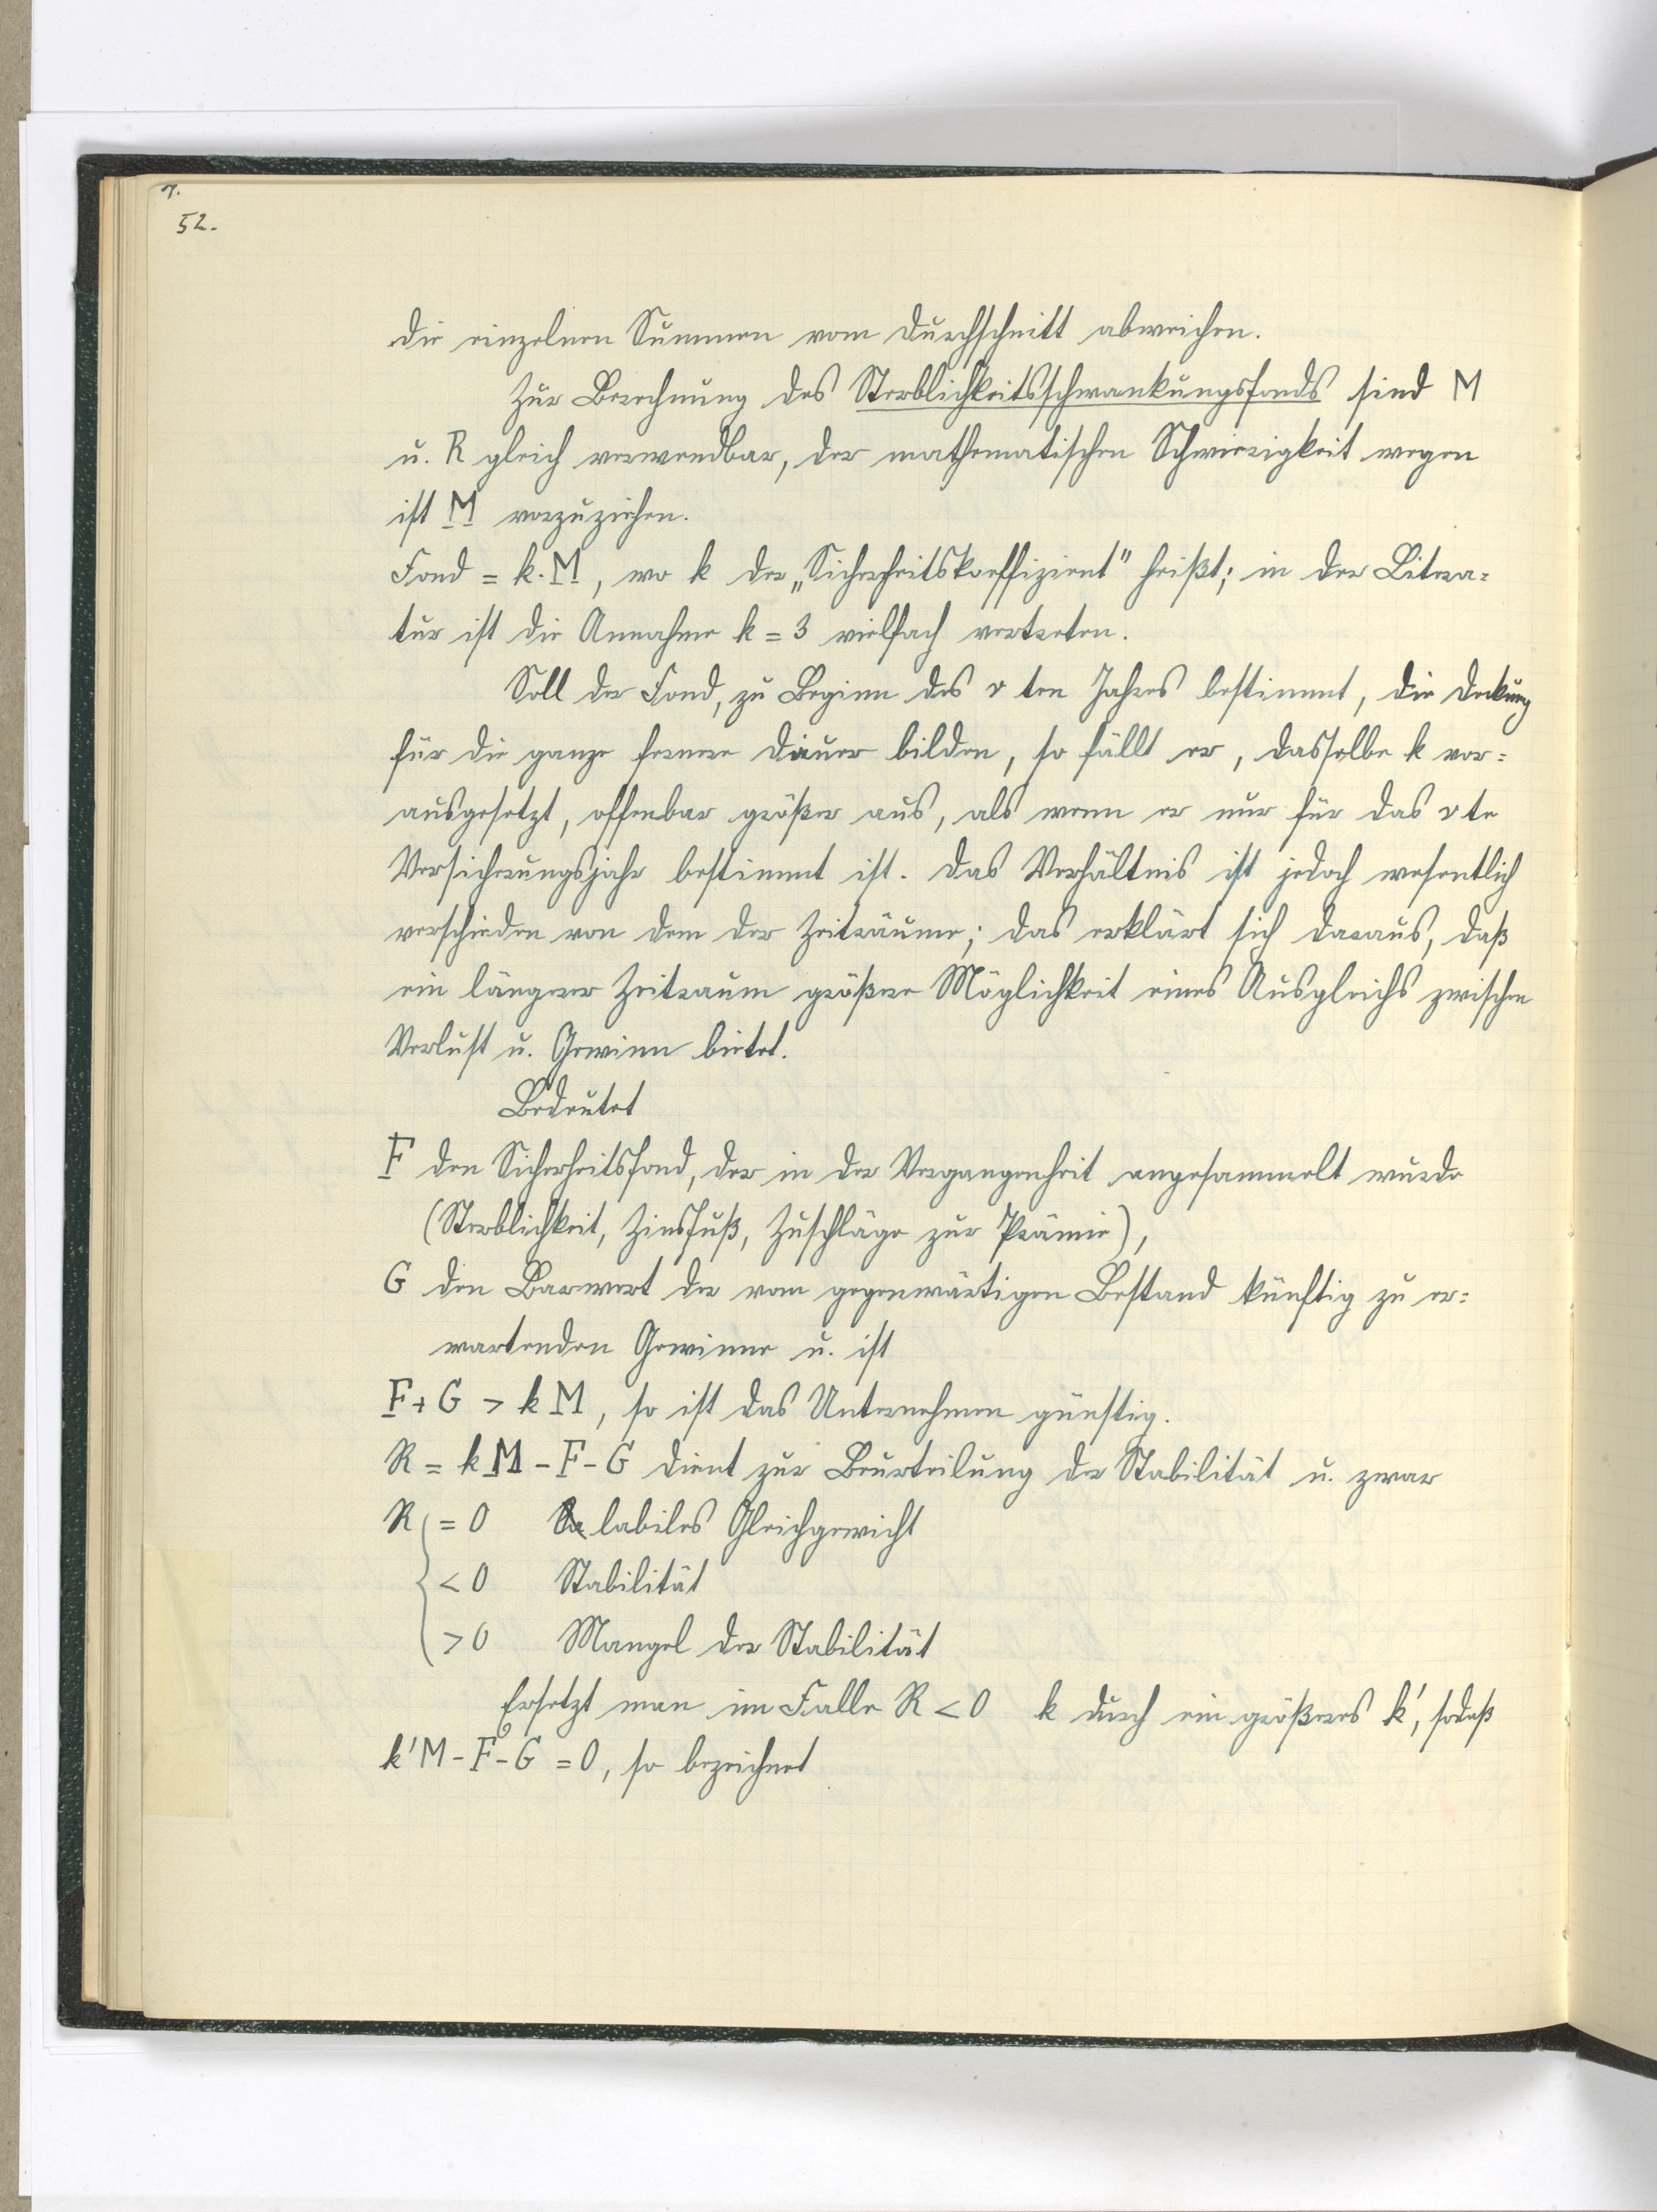 52.
die einzelnen Summen vom Durchschnitt abweichen.
Zur Berechnung des Sterblichkeitsschwankungsfonds sind M
u. R gleich verwendbar, der mathematischen Schwierigkeit wegen
ist M vorzuziehen.
Fond = k. M, wo k der „Sicherheitskoeffizient" heißt; in der Litera-
tur ist die Annahme k = 3 vielfach vertreten.
Soll der Fond, zu Beginn des v ten Jahres bestimmt, die Deckung
für die ganze fernere Dauer bilden, so fällt er, dasselbe k vor-
ausgesetzt, offenbar größer aus, als wenn er nur für das v te
Versicherungsjahr bestimmt ist. Das Verhältnis ist jedoch wesentlich
verschieden von dem der Zeiträume; das erklärt sich daraus, daß
ein längerer Zeitraum größere Möglichkeit eines Ausgleichs zwischen
Verlust u. Gewinn bietet.
Bedeutet
F den Sicherheitsfond, der in der Vergangenheit angesammelt wurde
(Sterblichkeit, Zinsfuß, Zuschläge zur Prämie),
G den Barwert der vom gegenwärtigen Bestand künftig zu er-
wartenden Gewinne u. ist
F + G > k M, so ist das Unternehmen günstig.
R = k M - F - G dient zur Beurteilung der Stabilität u. zwar
R = 0 labiles Gleichgewicht
< 0 Stabilität
> 0 Mangel der Stabilität
Ersetzt man im Falle R < 0 k durch ein größeres k', sodaß
k'M - F - G = 0, so bezeichnet